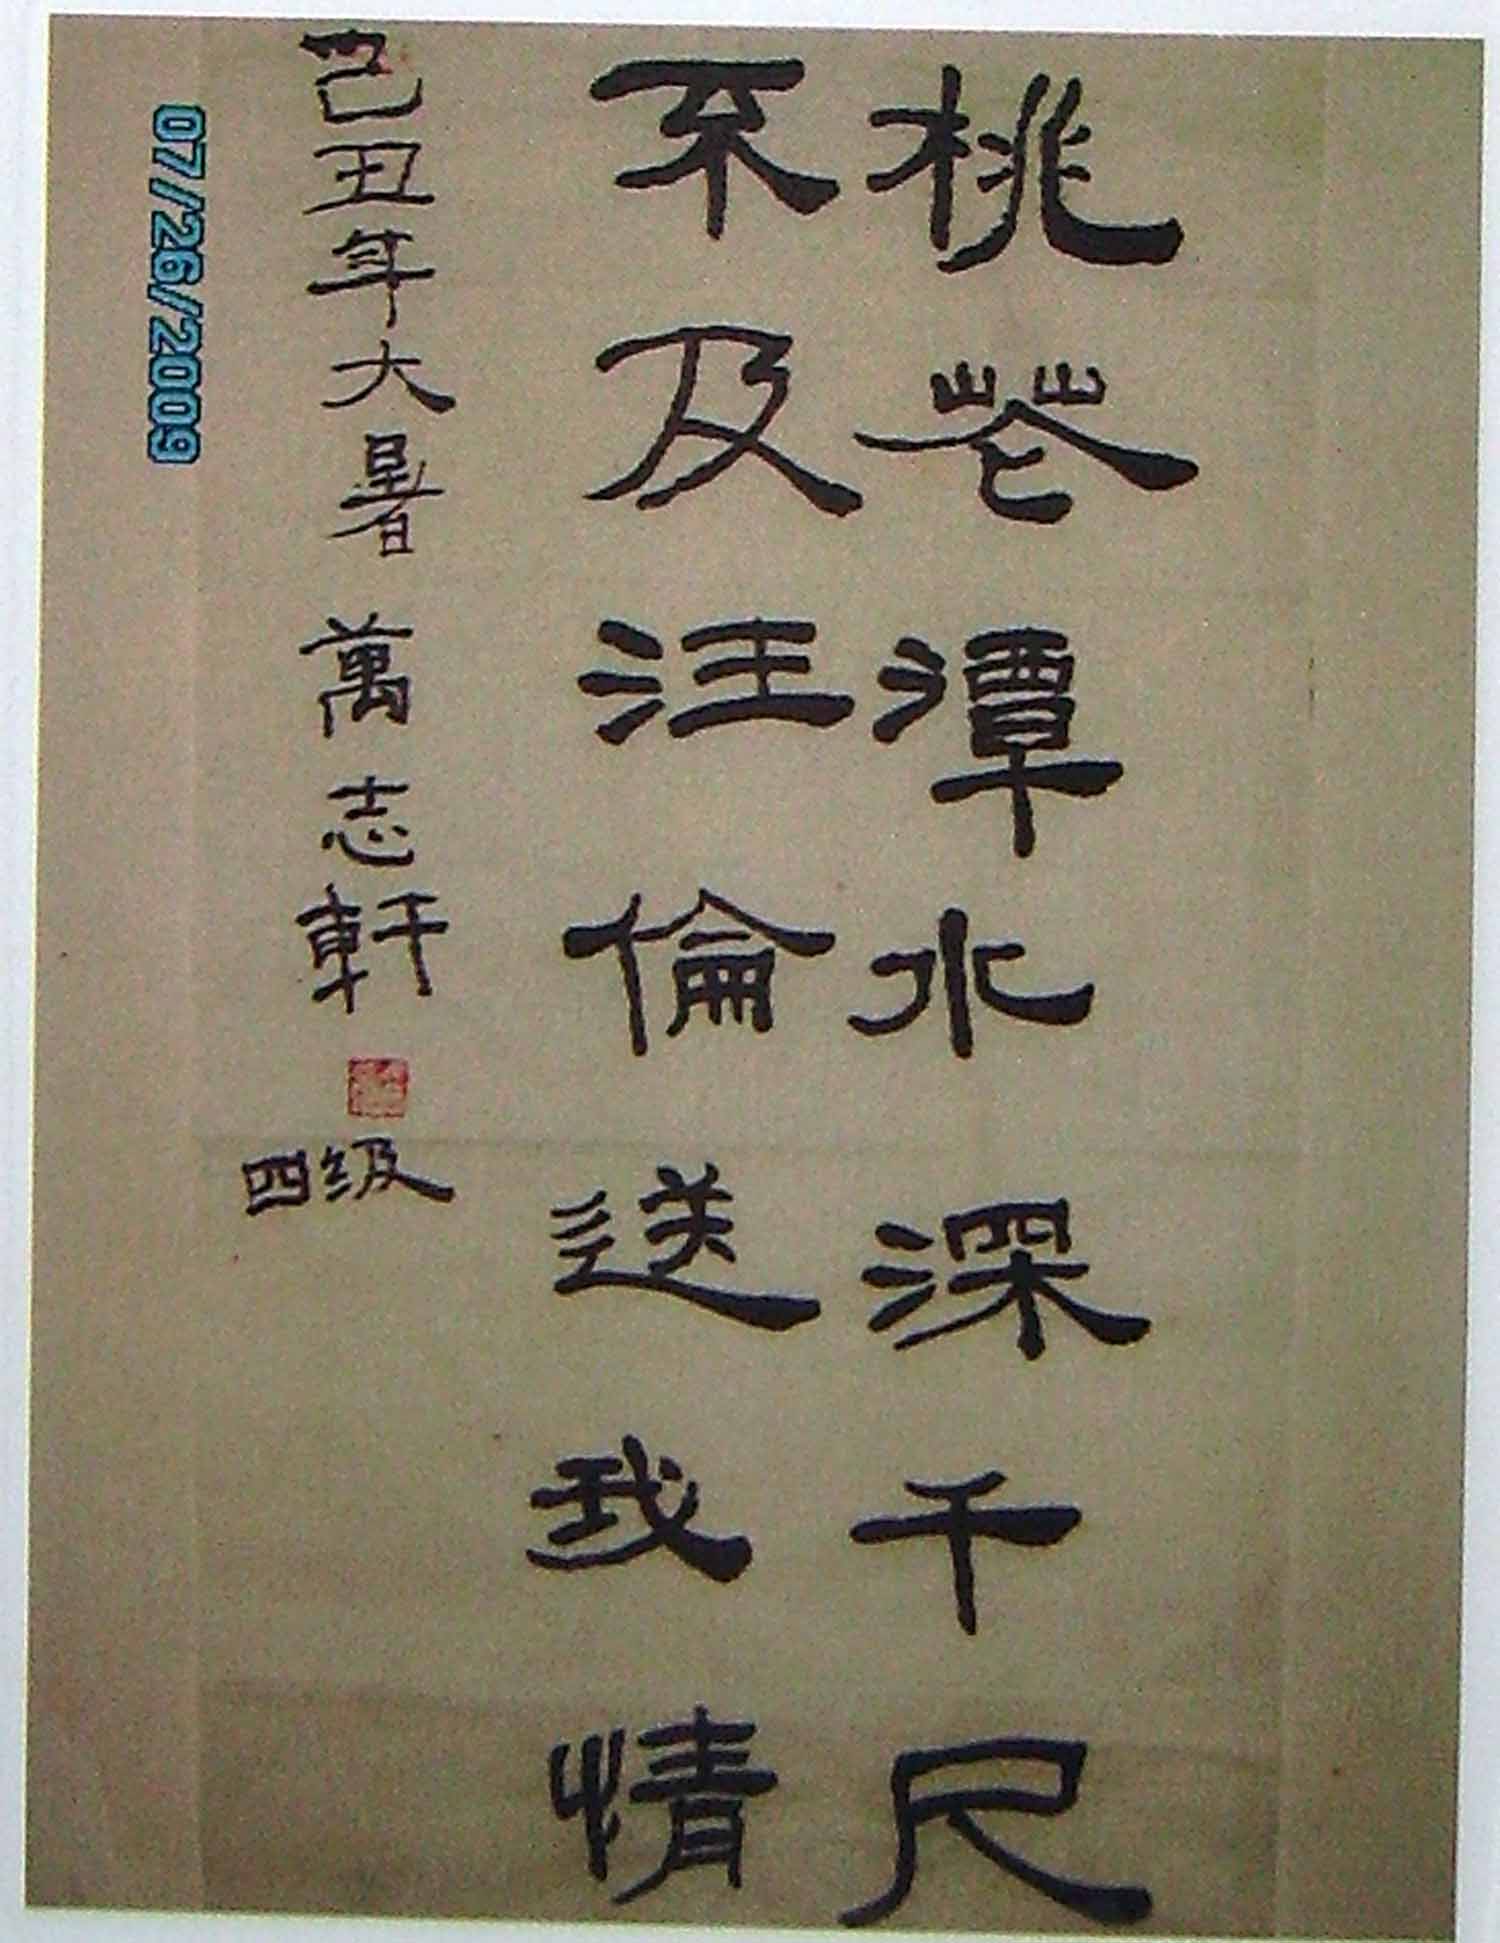 桃花潭水深千尺
不及汪倫送我情
己丑年大暑 萬志軒
四级
07/26/2009